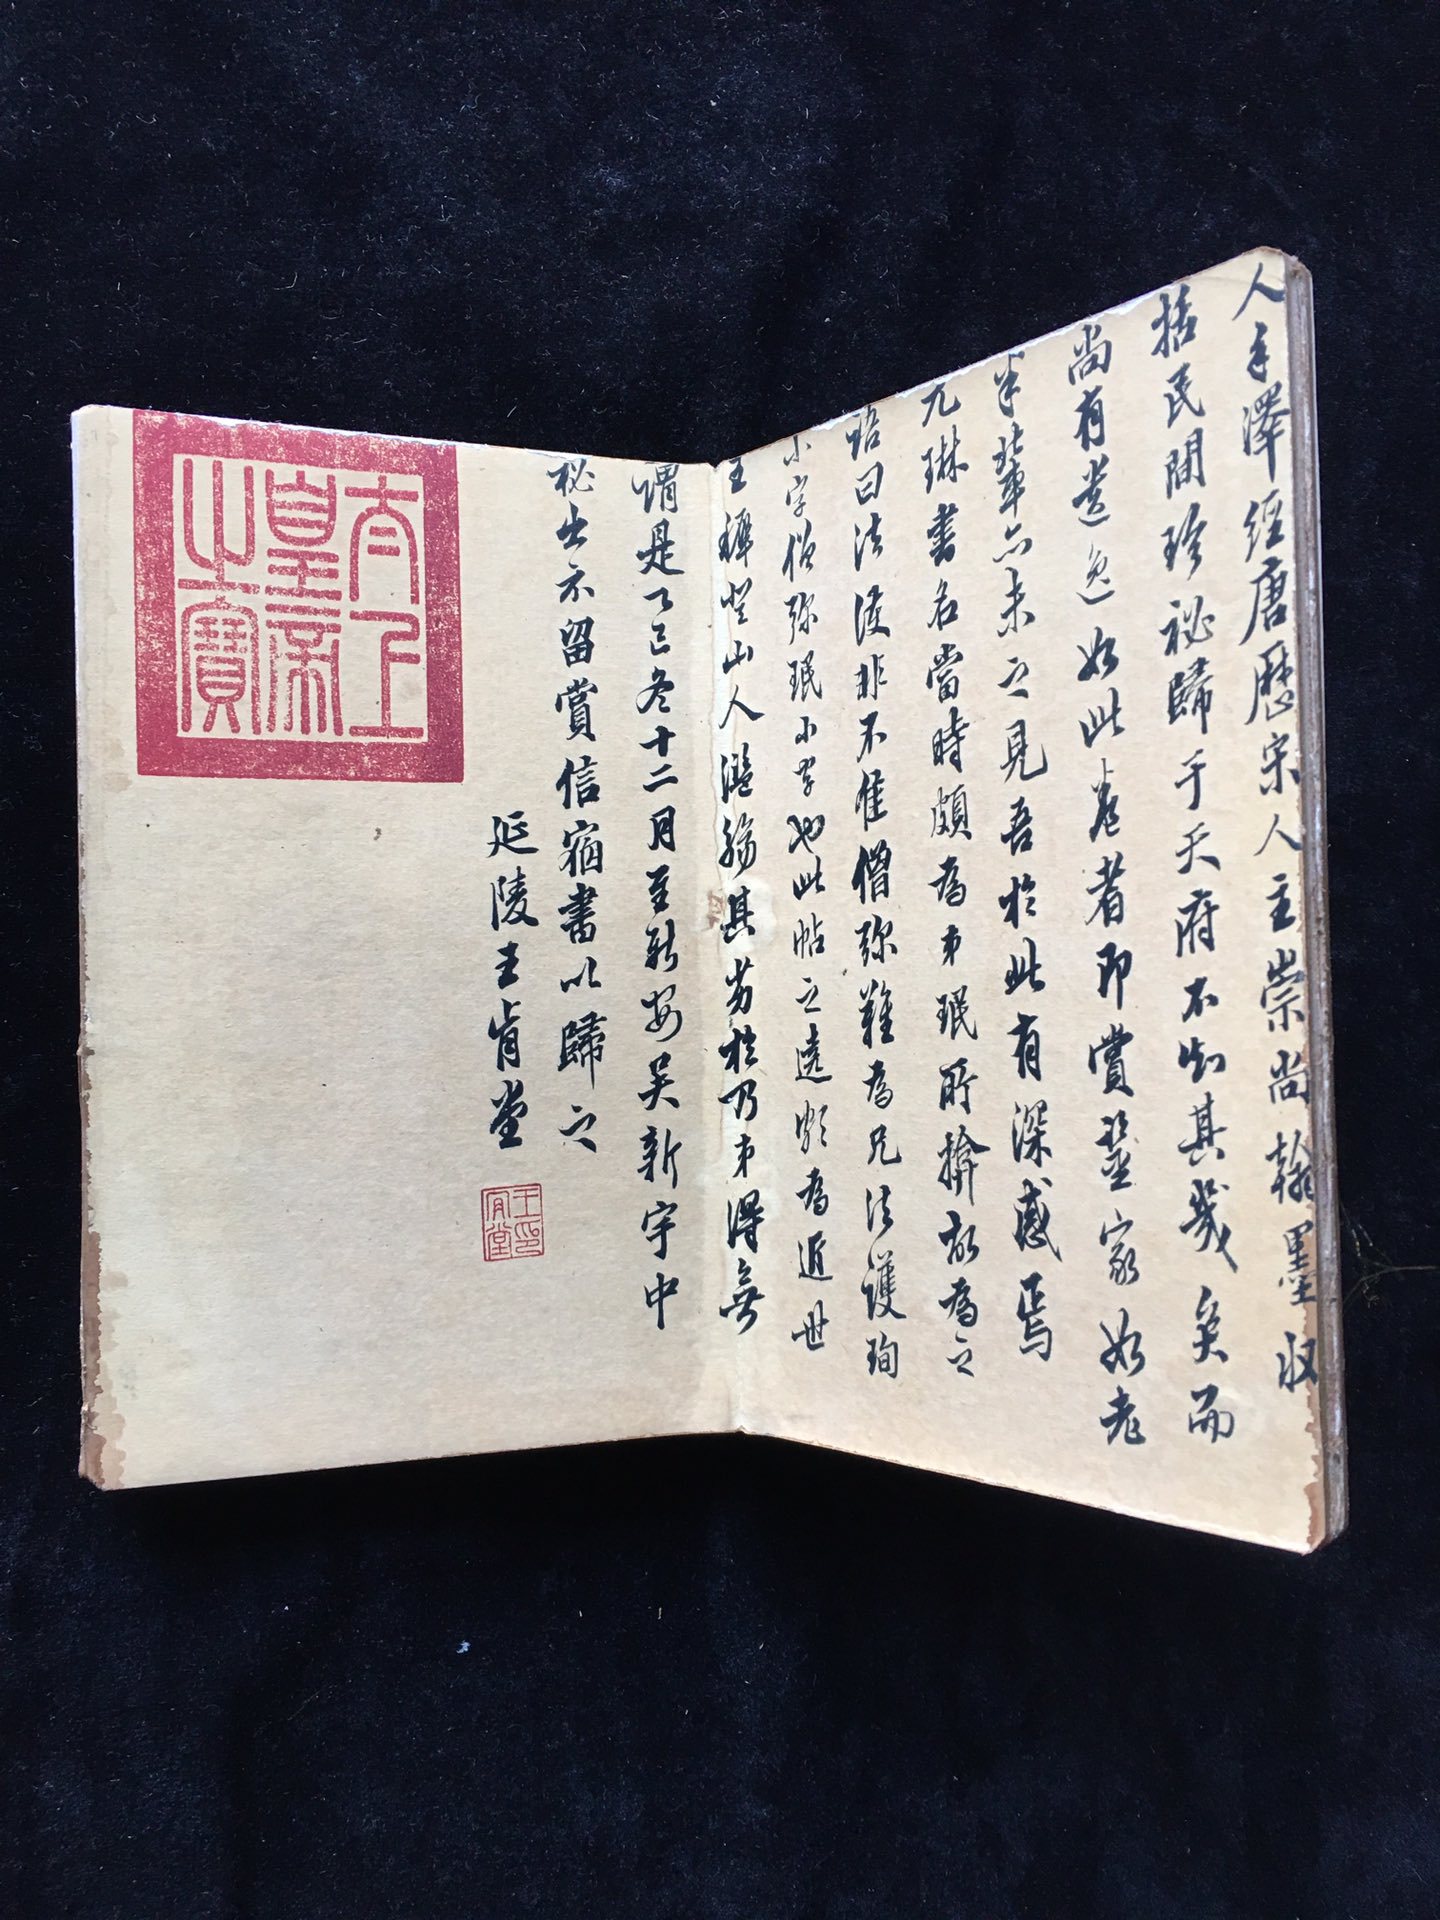 人手澤經唐歷宋人主崇尚翰墨收
括民間珍祕歸于天府不知其幾矣而
尚有遺逸如此卷者即賞鑒家如老
米輩亦未之見吾於此有深感焉
元琳書名當時頗為弟珉所揜故為之
語曰法護非不佳僧彌難為兄法護珣
小字僧彌珉小字也此帖之遠頗為近世
王穉登山人濫觴其劣於乃弟得無
謂是乙巳冬十二月至新安吳新宇中
祕出示留賞信宿書以歸之
延陵王肯堂
太上
皇帝
之寶
王肯堂印